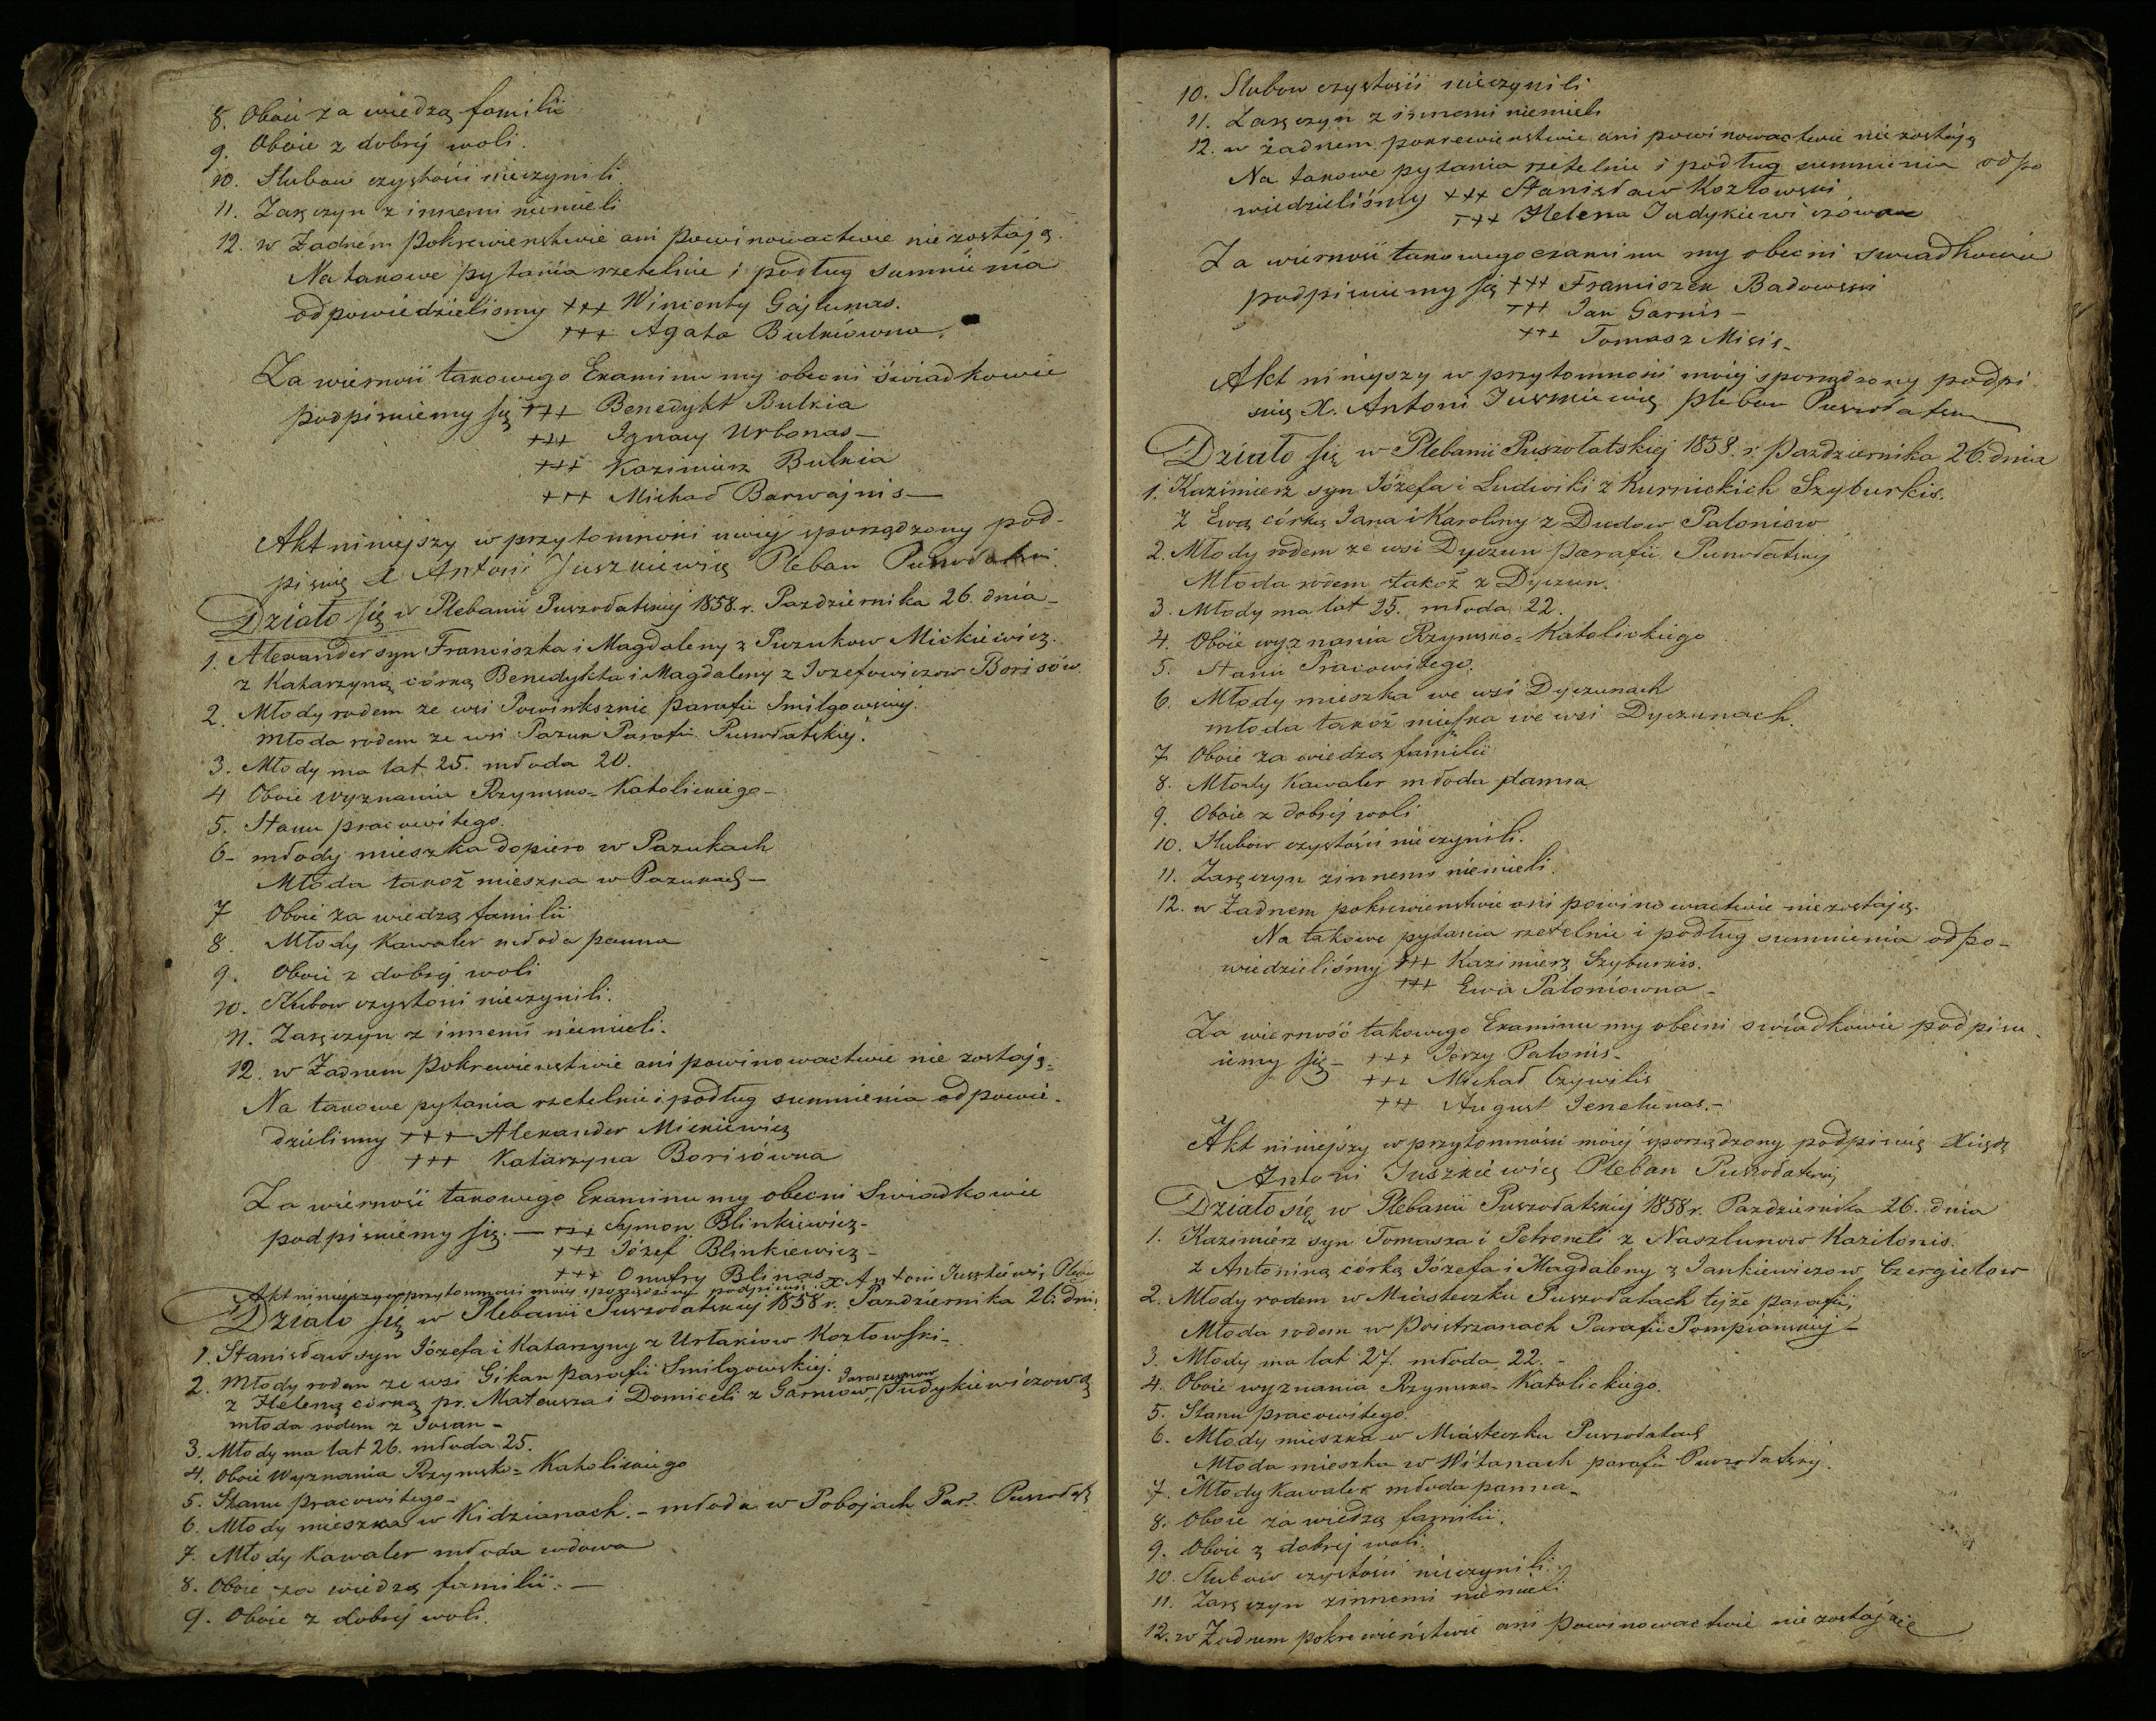 8. Oboie za wiedzą familii
9. Oboie z dobrej woli.
10. Slubow czystości nieczynili.
11. Zaręczyn z innemi niemieli
12. w Żadném pokrewieństwie ani powinowactwie nie zostają.
Na takowe pytania rzetelnie i podług sumnienia
odpowiedzielismy +++ Wincenty Gajlunas.
+++ Agata Bulkiówna.
Za wierność takowego Examinu my obecni świadkowie
podpisuiemy się +++ Benedykt Bulkia
+++ Ignacy Urbonas
+++ Kazimierz Bulkia
+++ Michał Barwajnis
Akt niniejszy w przytomności mojej sporządzony pod-
pisuię X Antoni Juszkiewicz Pleban
Działo się w Plebanii Puszołatskiej 1858. r. Pazdziernika 26. dnia
1. Alexander syn Franciszka i Magdaleny z Puzukow Mickiewicz.
z Katarzyną córką Benedykta i Magdaleny z Jozefowiczow Borisów
2. Młody rodem ze wsi Powinksznie parafii Smilgowskiej.
Młoda rodem ze wsi Pazuk Parafii Puszołatskiej.
3. Młody ma lat 25. młoda 20.
4 Oboie wyznania Rzymsko-Katolickiego
5. Stanu pracowitego.
6- młody mieszka dopiero w Pazukach
Młoda takoż mieszka w Pazukach
7 Oboie za wiedzą familii
8. Młody Kawaler młoda panna
9. Oboie z dobrej woli
10. Slubow czystości nieczynili.
11. Zaręczyn z innemi niemieli.
12. w Żadnem pokrewieństwie ani powinowactwie nie zostają.
Na takowe pytania rzetelnie i podług sumnienia odpowie-
dzielismy +++ Alexander Mickiewicz
+++ Katarzyna Borisówna
Za wierność takowego Examinu my obecni Swiadkowie
podpisuiemy się. — +++ Symon Blinkiewicz
+++ Józef Blinkiewicz
+++ Onufry Blinas
Akt niniejszy w przytomności moiej sporządzony podpisuię X Antoni Juszkiewicz Pleban
Działo się w Plebanii Puszołatskiej 1858 r. Pazdziernika 26. dnia
1. Stanisław syn Józefa i Katarzyny z Urłakiow Kozłowski
2. Młody rodem ze wsi Gikan parafii Smilgowskiej.
z Heleną córką pr. Mateusza i Domiceli z Garniow Judykiewiczową
młoda rodem z Josan
3. Młody ma lat 26. młoda 25.
4. Oboie Wyznania Rzymsko-Katolickiego
5. Stanu pracowitego
6. Młody mieszka w Kidzianach. - młoda w Pobojach Par.
7. Młody Kawaler młoda wdowa
8. Oboie za wiedzą familii. —
9. Oboie z dobrej woli.
10. Slubow czystości nieczynili
11. Zaręczyn z innemi niemieli
12. w żadnem pokrewieństwie ani powinowactwie nie zostają
Na takowe pytania rzetelnie i podług sumnienia odpo
wiedzieliśmy +++ Stanisław Kozłowski
+++ Helena Judykiewiczówna
Za wierność takowego examinu my obecni swiadkowie
podpisuiemy się +++ Franciszek Badowski
+++ Jan Garnis
+++ Tomasz Misis
Akt niniejszy w przytomności moiej sporządzony podpi
suię X. Antoni Juszkiewicz pleban
Działo się w Plebanii Puszołatskiej 1858. r. pazdziernika 26. dnia
1. Kazimierz syn Józefa i Ludwiki z Kurnickich Szyburkis.
z Ewą córką Jana i Karoliny z Dudow Paloniow
2. Młody rodem ze wsi Dyczun parafii Puszołatskiej
Młoda rodem takoż z Dyczun.
3. Młody ma lat 25. młoda 22.
4. Oboie wyznania Rzymsko-Katolickiego
5. Stanu Pracowitego.
6. Młody mieszka we wsi Dyczunach
młoda takoż mieszka we wsi Dyczunach.
7 Oboie za wiedzą familii
8. Młody Kawaler młoda panna
9. Oboie z dobrej woli
10. Slubow czystości nie czynili.
11. Zaręczyn z innemi niemieli.
12. w Żadnem pokrewieństwie ani powinowactwie nie zostają.
Na takowe pytania rzetelnie i podług sumnienia odpo-
wiedzieliśmy +++ Kazimierz Szyburkis.
+++ Ewa Paloniowna
Za wierność takowego Examinu my obecni swiadkowie podpisu
iemy się +++ Jerzy Palonis
+++ Michał Czywilis
+++ August
Akt niniejszy w przytomności moiej sporządzony podpisuię Xiądz
Antoni Juszkiéwicz Pleban Puszołatski
Działo się w Plebanii Puszołatskiej 1858 r. Pazdziernika 26. dnia
1. Kazimierz syn Tomasza i Petroneli z Naszlunow Kazilonis.
z Antoniną córką Józefa i Magdaleny z Jankiewiczow Czergielow
2. Młody rodem w Miasteczku Puszołatach tejże parafii,
Młoda rodem w Poistrzanach Parafii Pompianskiej
3. Młody ma lat 27. młoda 22. -
4. Oboie wyznania Rzymsko-Katolickiego.
5. Stanu pracowitego.
6. Młody mieszka w Miasteczku Puszołatach
Młoda mieszka w Witanach parafii Puszołatskiej.
7. Młody Kawaler młoda panna
8. Oboie za wiedzą familii.
9. Oboie z dobrej woli.
10. Slubow czystości nieczynili.
11. Zaręczyn z innemi niemieli
12. w Żadnem pokrewieństwie ani powinowactwie nie zostającie